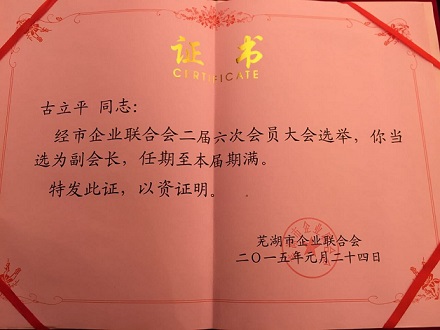 证书
CERTIFICATE
古立平 同志：
经市企业联合会二届六次会员大会选举，你当
选为副会长，任期至本届期满。
特发此证，以资证明。
芜湖市企业联合会
二〇一五年元月二十四日